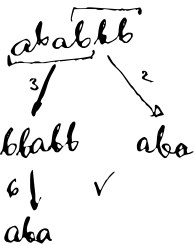 ababbb
3 2
bbabb aba
6 ✓
aba